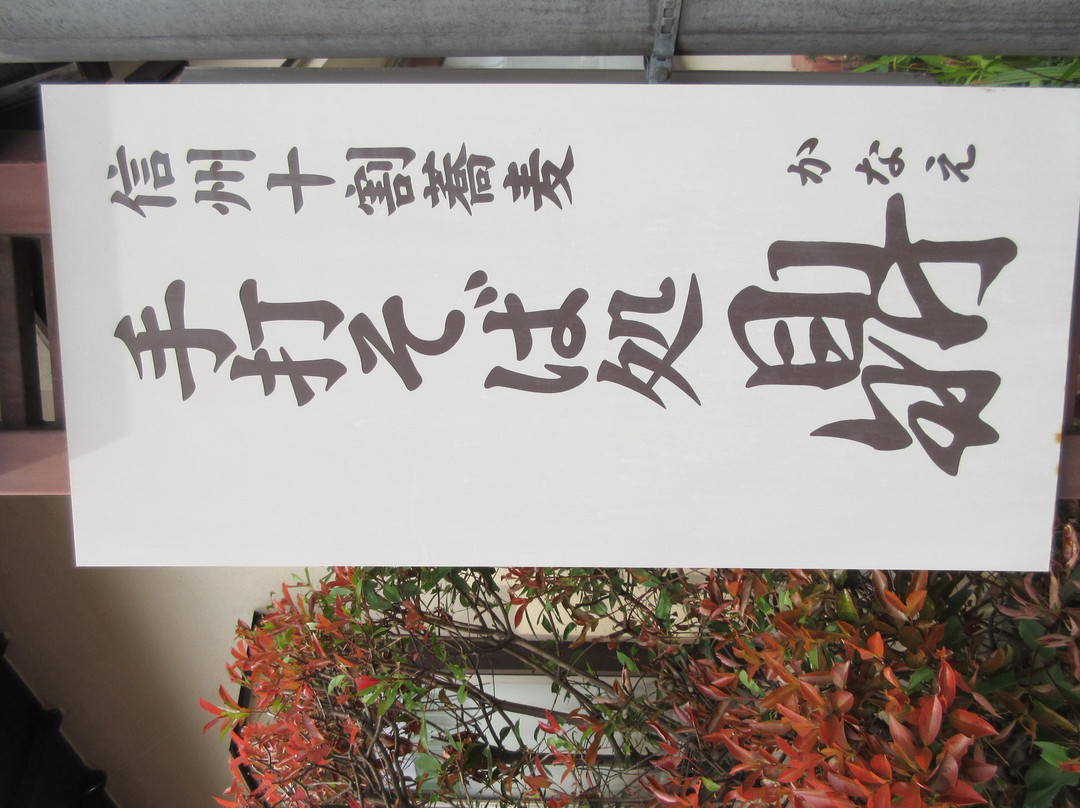 信州十割蕎麦
手打そば処
かなえ
鼎